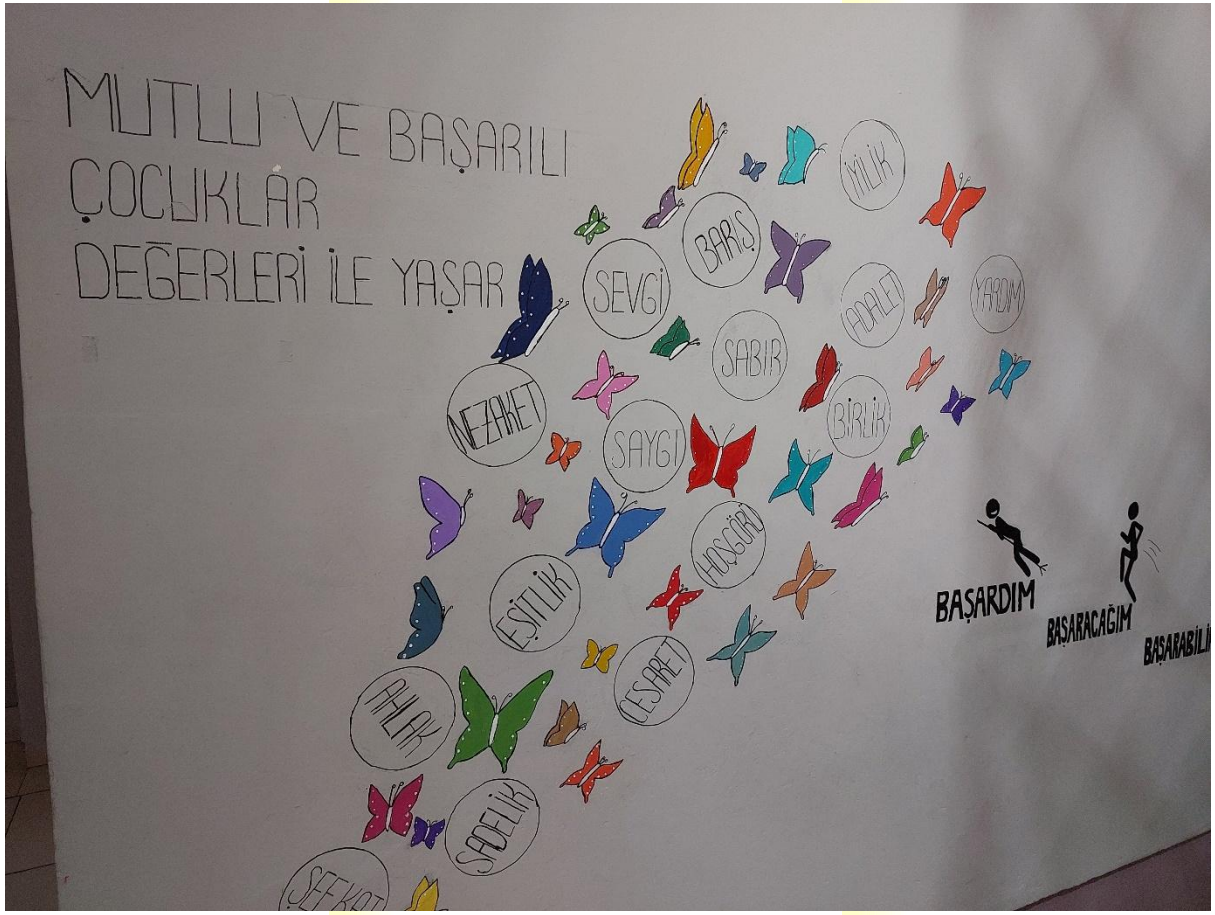 MUTLU VE BAŞARILI
ÇOCUKLAR
DEĞERLERİ İLE YAŞAR
İYİLİK
BARIŞ
SEVGİ
ADALET
YARDIM
SABIR
NEZAKET
BİRLİK
SAYGI
HOŞGÖRÜ
EŞİTLİK
CESARET
AHLAK
SADELİK
ŞEFKAT
BAŞARDIM
BAŞARACAĞIM
BAŞARABİLİ